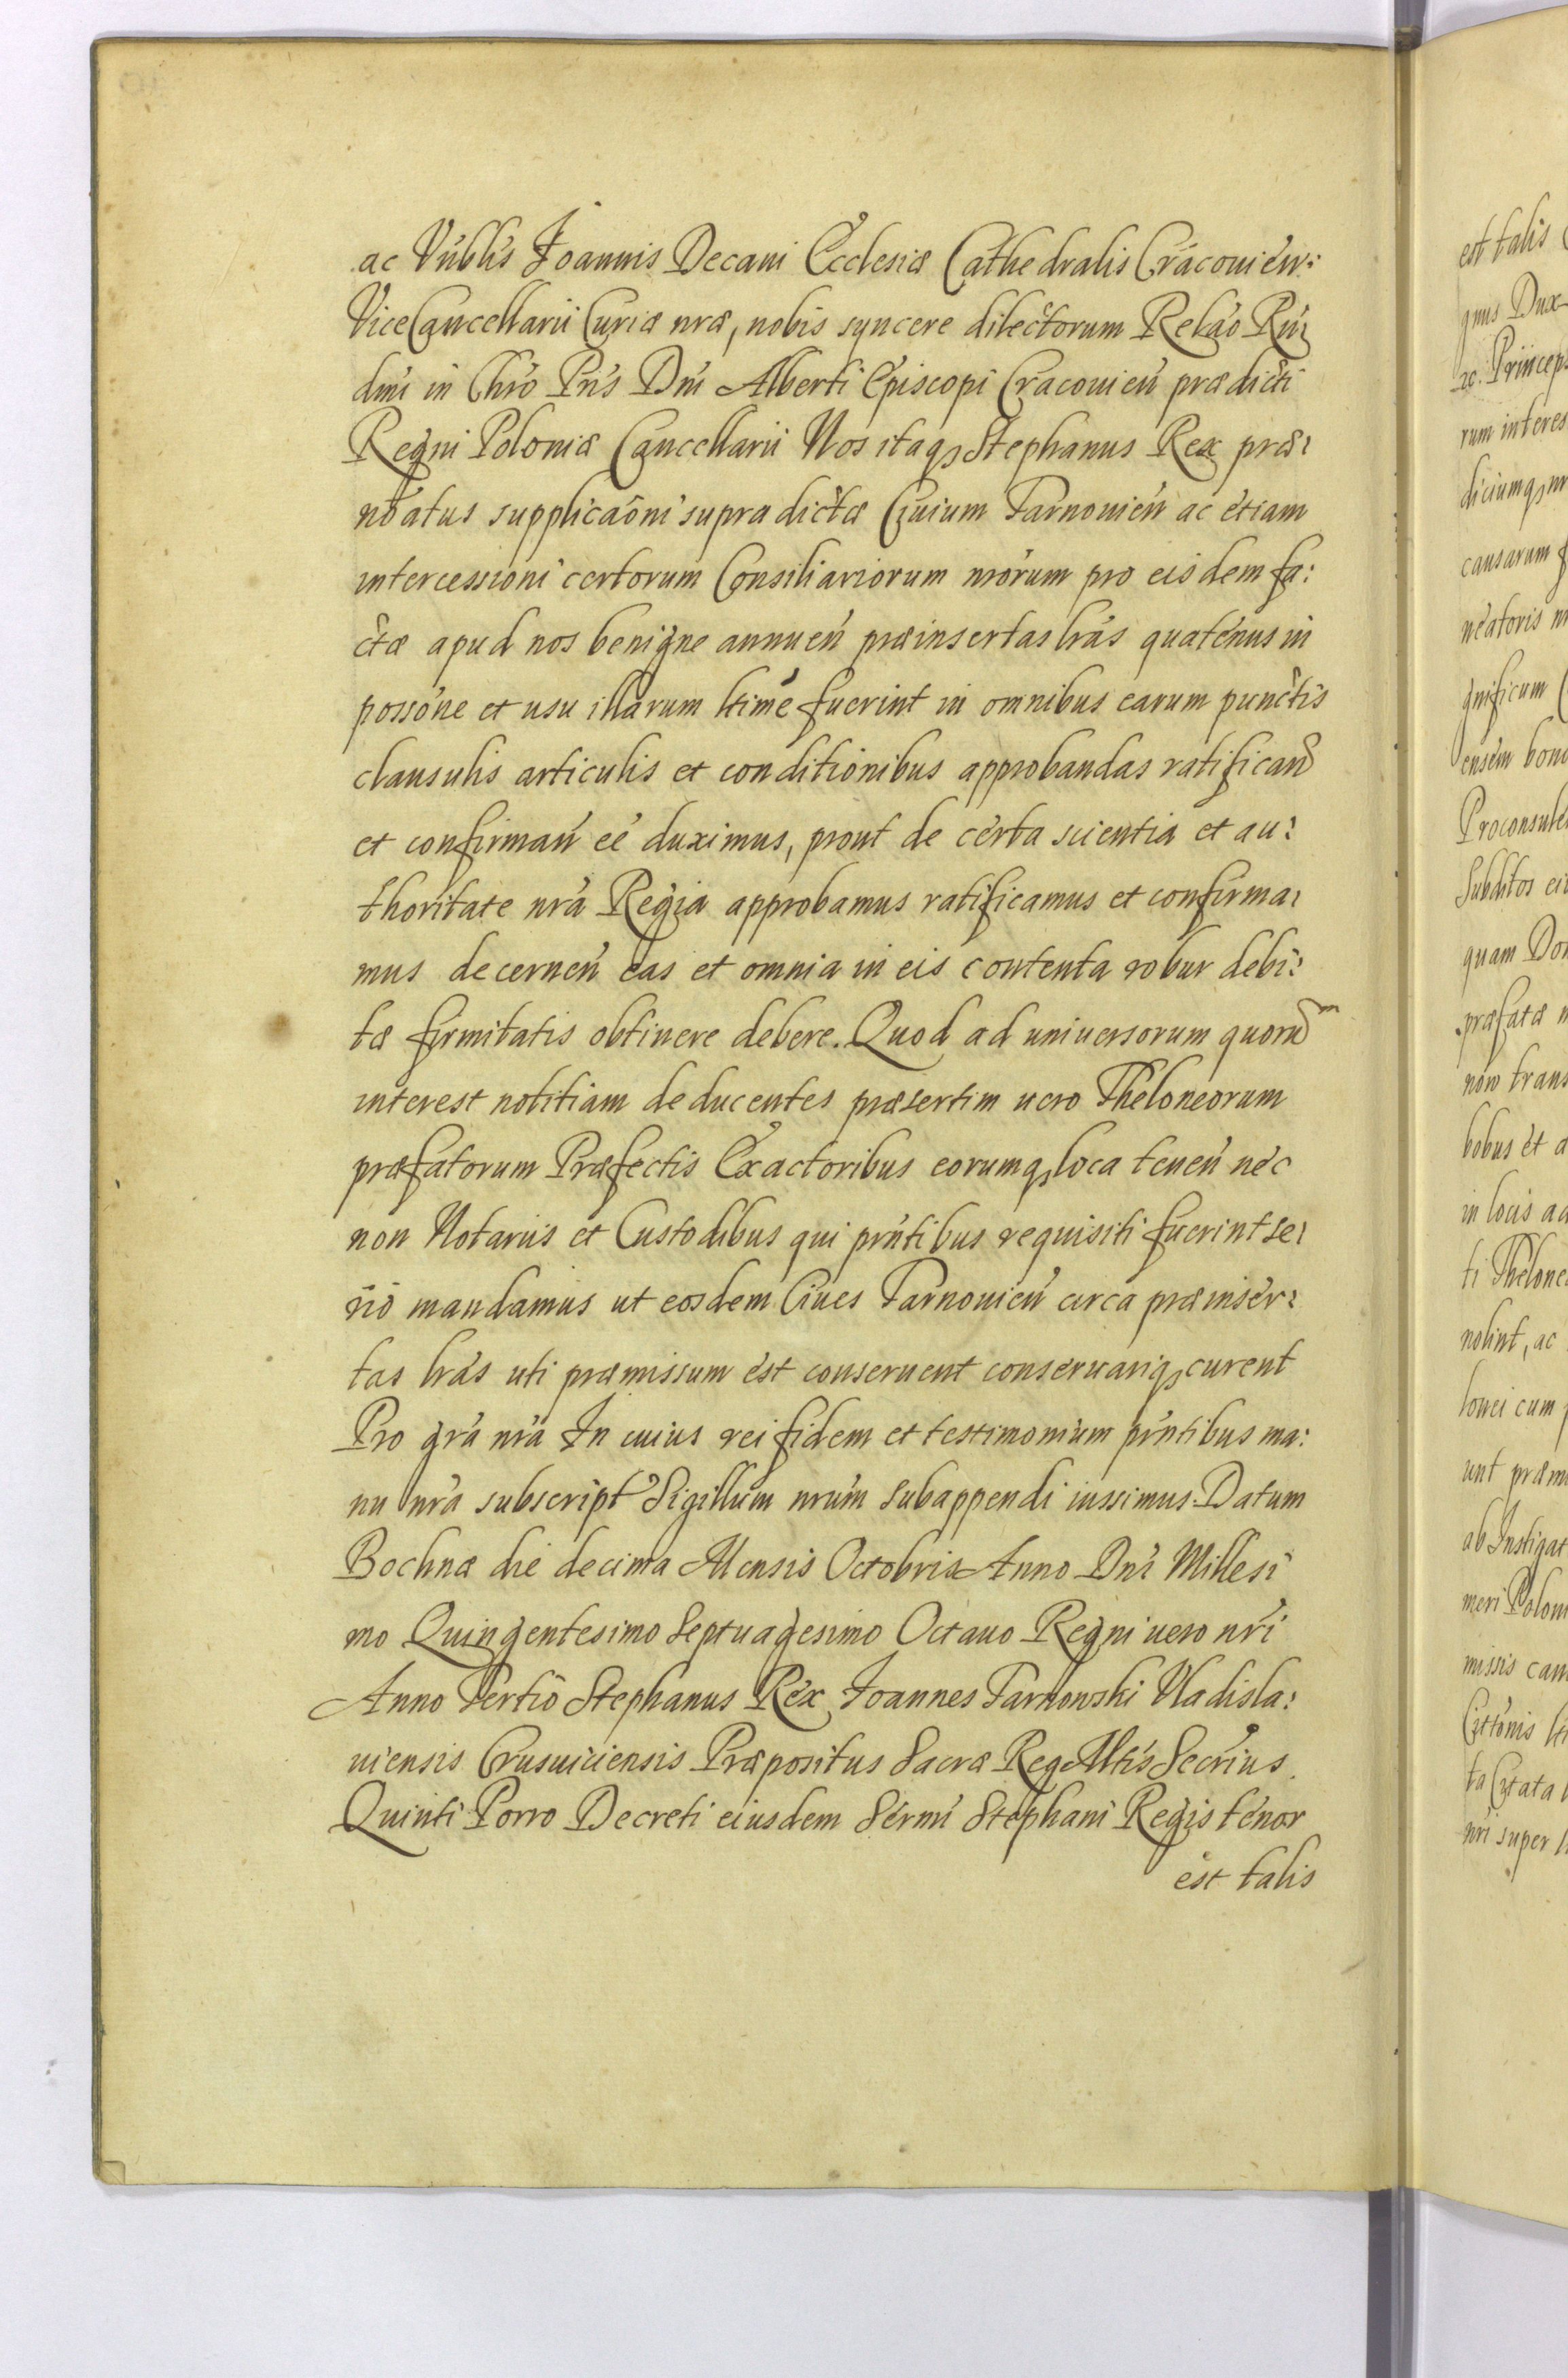 ac Vńblis Joannis Decani Ecclesiæ Cathedralis Cracouień:
ViceCancellarii Curiæ nræ, nobis syncere dilectorum Relão Rń:
dmi in Chrõ Pris Dni Alberti Episcopi Cracouień prædicti
Regni Poloniæ Cancellarii Nos itaqȝ Stephanus Rex præ:
nõatus supplicaõni supra dictæ Ciuium Tarnouień ac etiam
intercessioni certorum Consiliariorum nrorum pro eisdem fa:
ctæ apud nos benigne annueń præinsertas lras quatenus in
possõne et usu illarum ltime fuerint in omnibus earum punctis
clausulis articulis et conditionibus approbandas ratificand
et confirmań eé duximus, prout de certa scientia et au:
thoritate nrã Regia approbamus ratificamus et confirma:
mus decerneń eas et omnia in eis contenta robur debi:
tæ firmitatis obtinere debere. Quod ad uniuersorum quorum
interest notitiam deducentes præsertim uero Theloneorum
præfatorum Præfectis Exactoribus eorumqȝ loca teneń nec
non Notariis et Custodibus qui prńtibus requisiti fuerint se:
rió mandamus ut eosdem Ciues Tarnouień circa præinser:
tas lras uti præmissum est conseruent conseruariqȝ curent
Pro grã nrã In cuius rei fidem et testimonium prńtibus ma:
nu nrã subscript Sigillum nrum subappendi iussimus. Datum
Bochnæ die decima Mensis Octobris Anno Dni Millesi
mo Quingentesimo Septuagesimo Octauo Regni uero nri
Anno Tertio Stephanus Rex Joannes Tarnowski Vladisla:
uiensis Crusuiciensis Præpositus Sacræ Reg Mtis Secrius
Quinti Porro Decreti eiusdem Sermi Stephani Regis tenor
est talis
est talis
gnus Dux
rc. Princeps
rum interes
diciumqȝ nr
causarum
gnificum
ensem bono
Proconsule
Subditos ei
quam Do
præfatæ
non trans
bobus et a
in locis ad
ti Thelone
nolint, ac
lonei cum
unt præmi
ab Instigat
meri Polon
missis cau
ta Citata
nri super